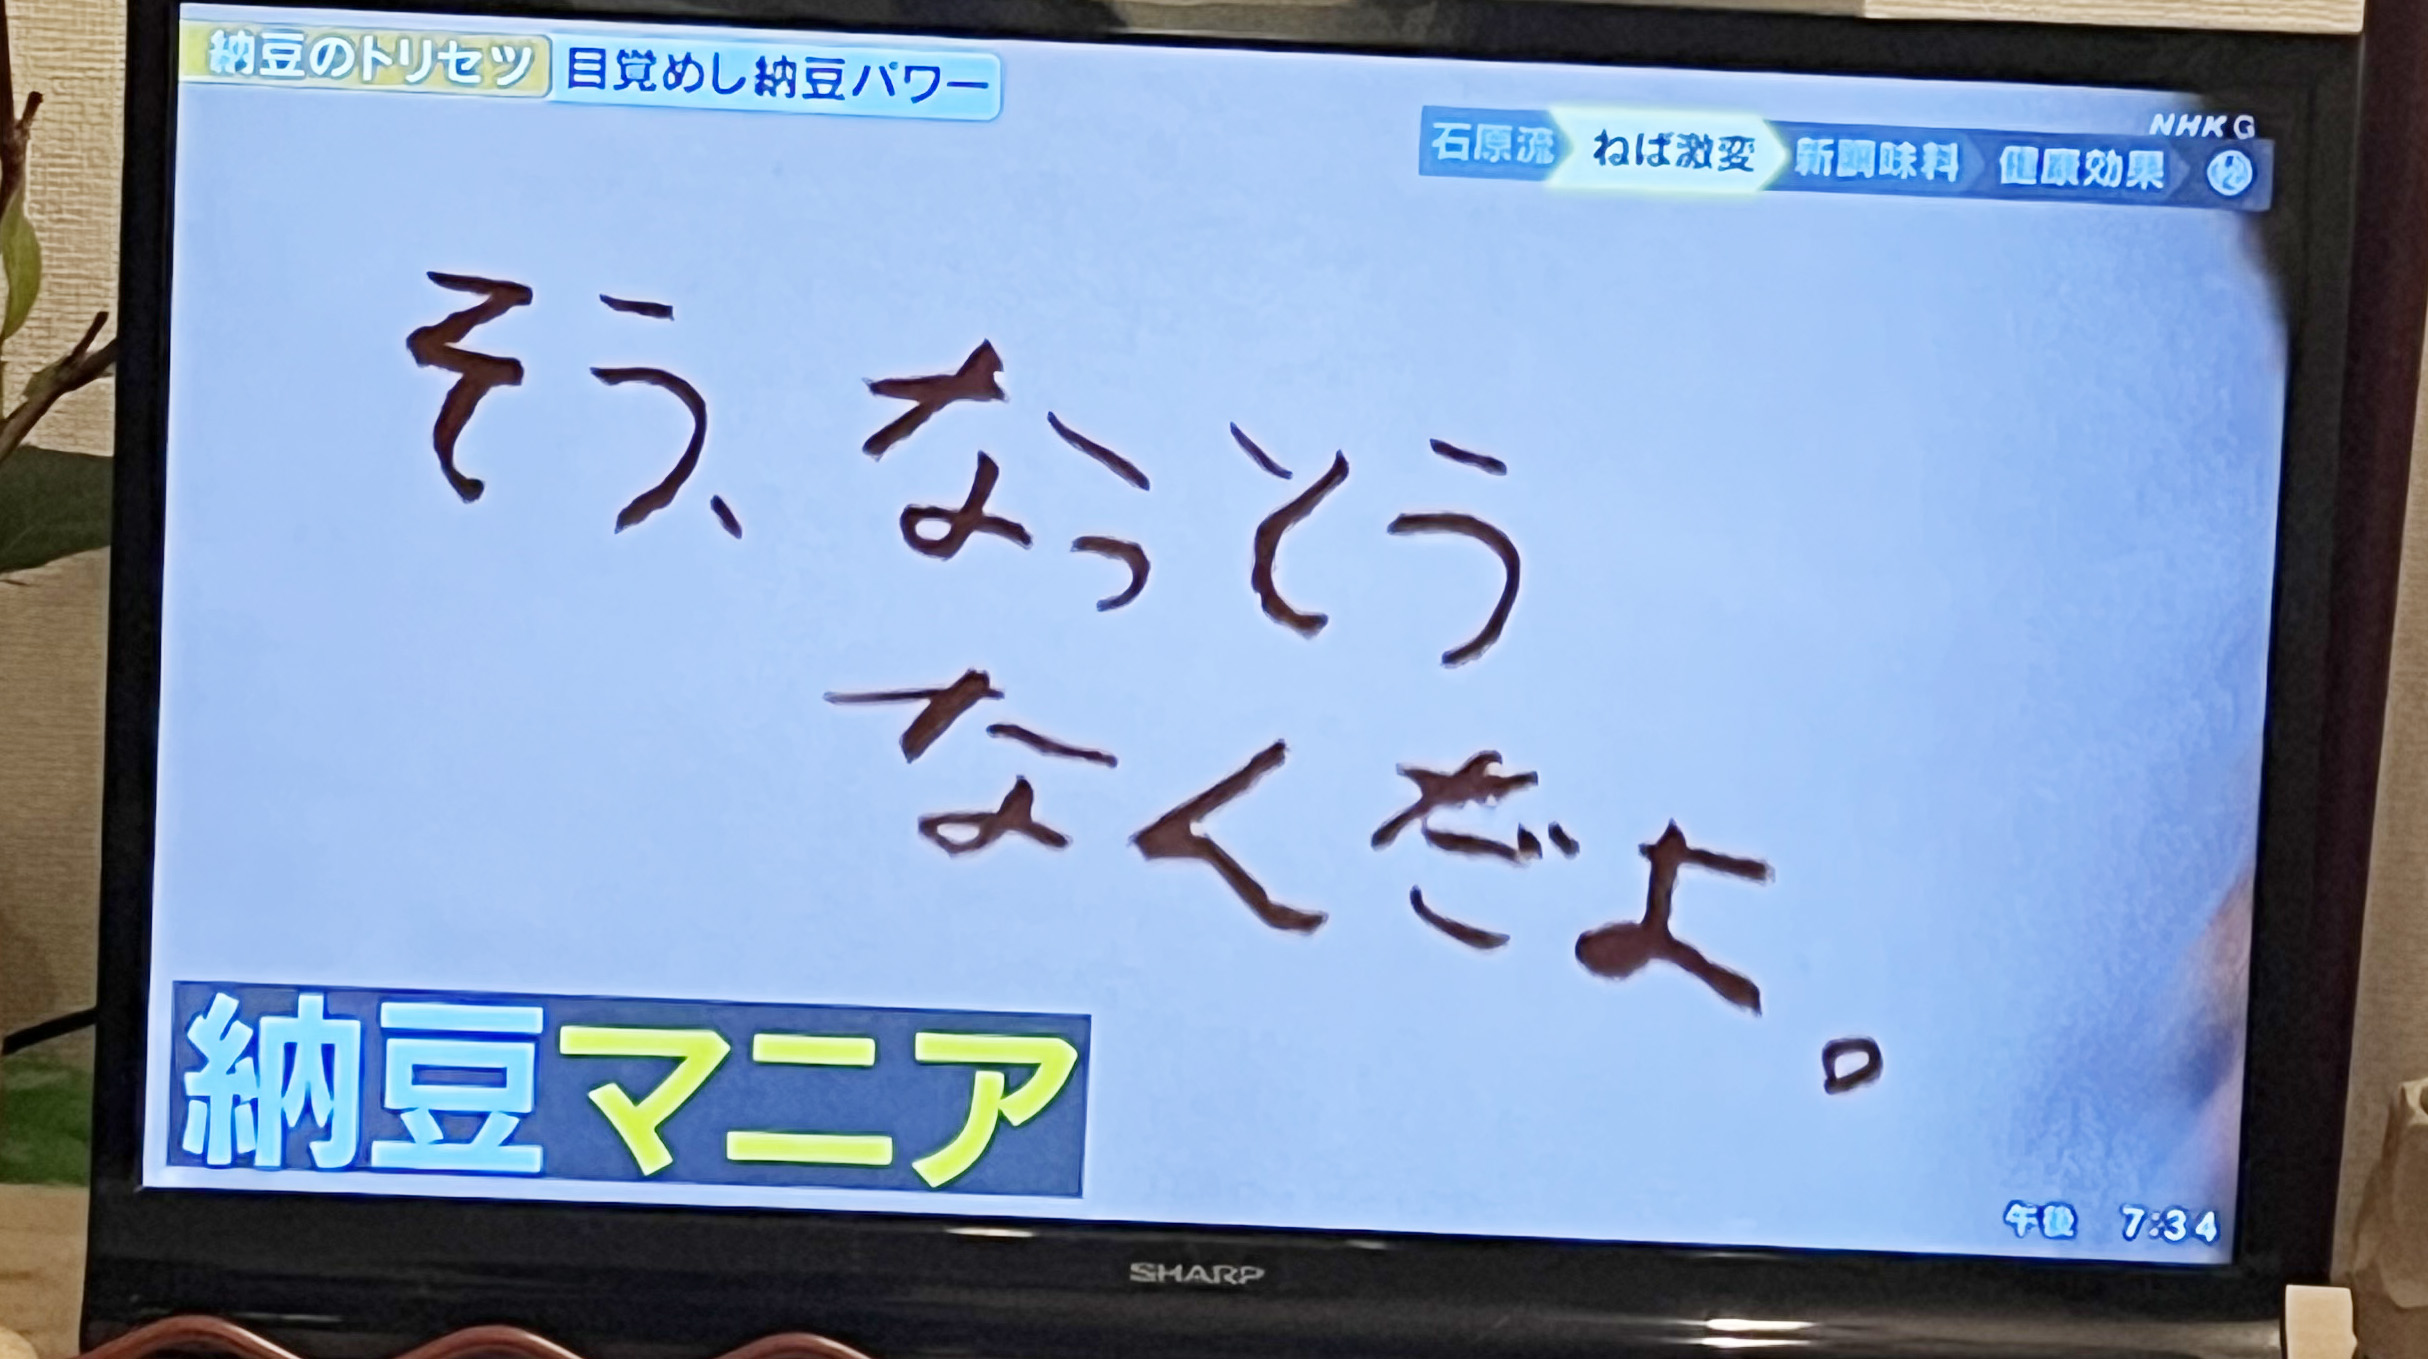 納豆のトリセツ 目覚めし納豆パワー
NHK G
石原流 ねば激変 新調味料 健康効果
そう、なっとう
なくだよ。
納豆マニア
午後 7:34
SHARP